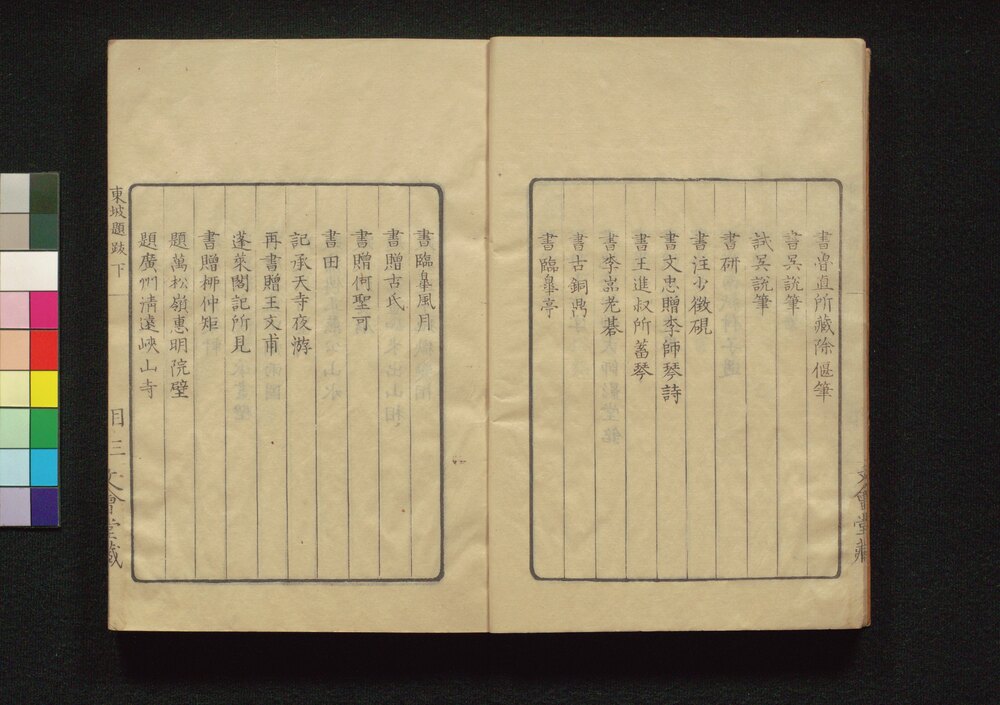 書魯直所藏徐偃筆
書吳說筆
試吳說筆
書研
書注少微硯
書文忠贈李師琴詩
書王進叔所蓄琴
書李嵓老棊
書古銅鼎
書臨皐亭
文會堂藏
書臨皐風月
書贈古氏
書贈何聖可
書田
記承天寺夜游
再書贈王文甫
蓬萊閣記所見
書贈栁仲矩
題萬松嶺惠明院壁
題廣州淸遠峽山寺
東坡題跋 下
目 三
文會堂藏